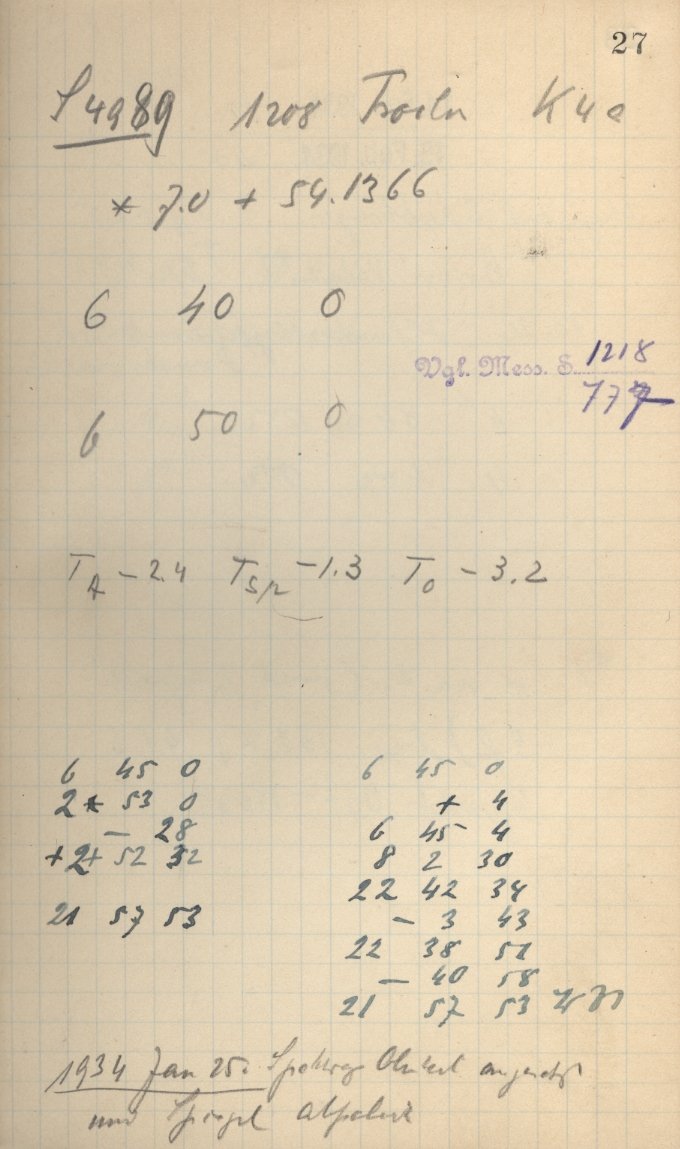 27
S 4989 1208 K 4 e
* 7.0 + 54.1366
6 40 0
Vgl. Mess. S. 1218
777
6 50 0
T_A - 2.4 T_Sp - 1.3 T_O - 3.2
6 45 0
2 * 53 0
- 28
+ 2 + 52 32
21 57 53
6 45 0
+ 4
6 45 4
8 2 30
22 42 34
- 3 43
22 38 51
- 40 58
21 57 53
1934 Jan 25.
und Spiegel